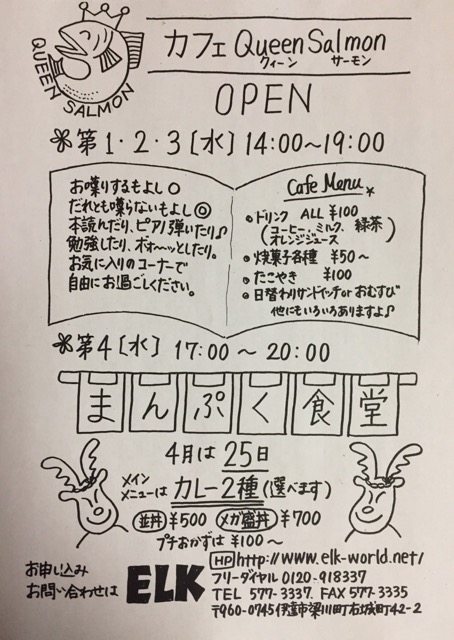 QUEEN SALMON
カフェ Queen Salmon
クィーン サーモン
OPEN
第1・2・3[水] 14:00〜19:00
お喋りするもよし○
だれとも喋らないもよし◎
本読んだり、ピアノ弾いたり♪
勉強したり、ボォ〜ッとしたり。
お気に入りのコーナーで
自由にお過ごしください。
Cafe Menu
ドリンク ALL ¥100
(コーヒー、ミルク、緑茶
オレンジジュース)
焼菓子各種 ¥50〜
たこやき ¥100
日替わりサンドイッチor おむすび
他にもいろいろありますよ♪
第4[水] 17:00 〜 20:00
まんぷく食堂
4月は 25日
メイン
メニューは カレー2種(選べます)
並丼 ¥500 メガ盛丼 ¥700
プチおかずは ¥100〜
お申し込み
お問い合わせは
ELK
HP http://www.elk-world.net/
フリーダイヤル 0120-918337
TEL 577-3337. FAX 577-3335
〒960-0745 伊達市梁川町右城町42-2